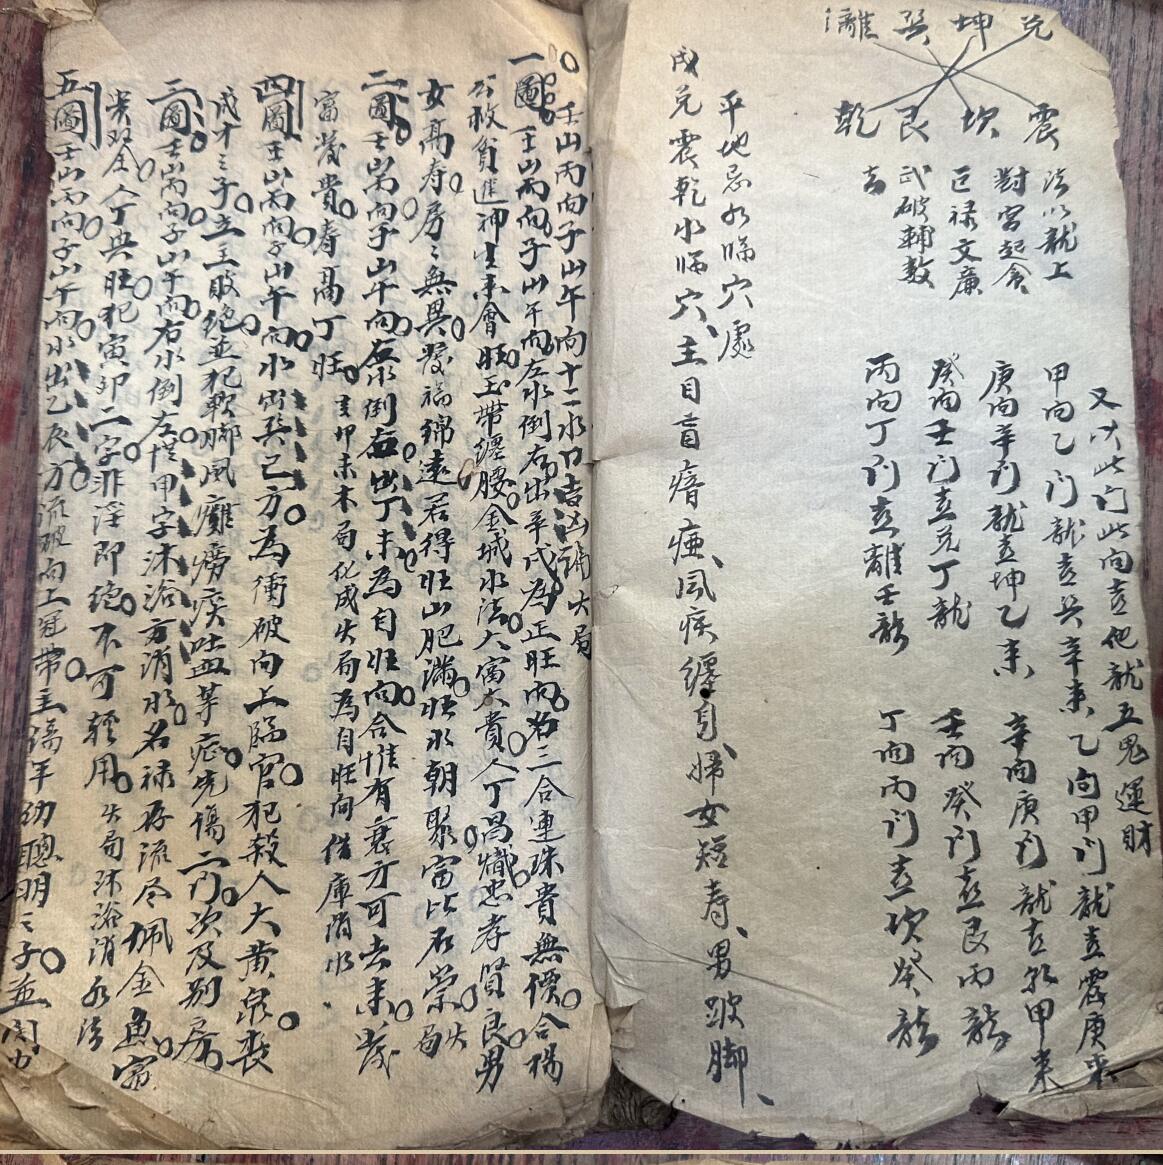 兑 坤 巽 離
震 坎 艮 乾
法以龍上
對宮起貪
巨祿文廉
武破輔数
吉
又以此门此向吉他龍五鬼運財
甲向乙门龍吉巽辛来乙向甲门龍吉震庚来
庚向辛门龍吉坤乙来 辛向庚门龍吉 甲来
癸向壬门吉兑丁龍 壬向癸门吉艮丙龍
丙向丁门吉離壬龍 丁向丙门吉坎癸龍
平地忌水臨穴處
兑震乾水臨穴、主目盲瘖瘂、風疾纏身、婦女短寿、男跛脚、
壬山丙向子山午向十二水口吉凶 大局
一圖壬山丙向子山午向左水倒右出辛戌為正旺向名三合連珠貴無價合楊
公救貧進神生来會旺玉帶纏腰金城水法大富大貴人丁昌熾忠孝賢良男
女高寿房々無異發福綿遠若得旺山肥滿旺水朝聚富比石崇 火局
二圖壬山丙向子山午向右水倒左出丁未為自旺向合惟有衰方可去来發
富發貴寿高丁旺 亥卯未木局化成火局為自旺向借庫消水
四圖壬山丙向子山午向水出巽巳方為衝破向上臨官犯殺人大黄泉丧
成才之子立主敗绝並犯軟脚風癱痨疾吐血等症先傷二门次及别房
三圖壬山丙向子山午向右水倒左從甲字沐浴方消水名禄存流尽佩金魚富
貴双全人丁興旺犯寅卯二字非淫即绝不可軽用 火局沐浴消水法
五圖壬山丙向子山午向水出乙辰方流破向上冠帶主傷年幼聰明之子並